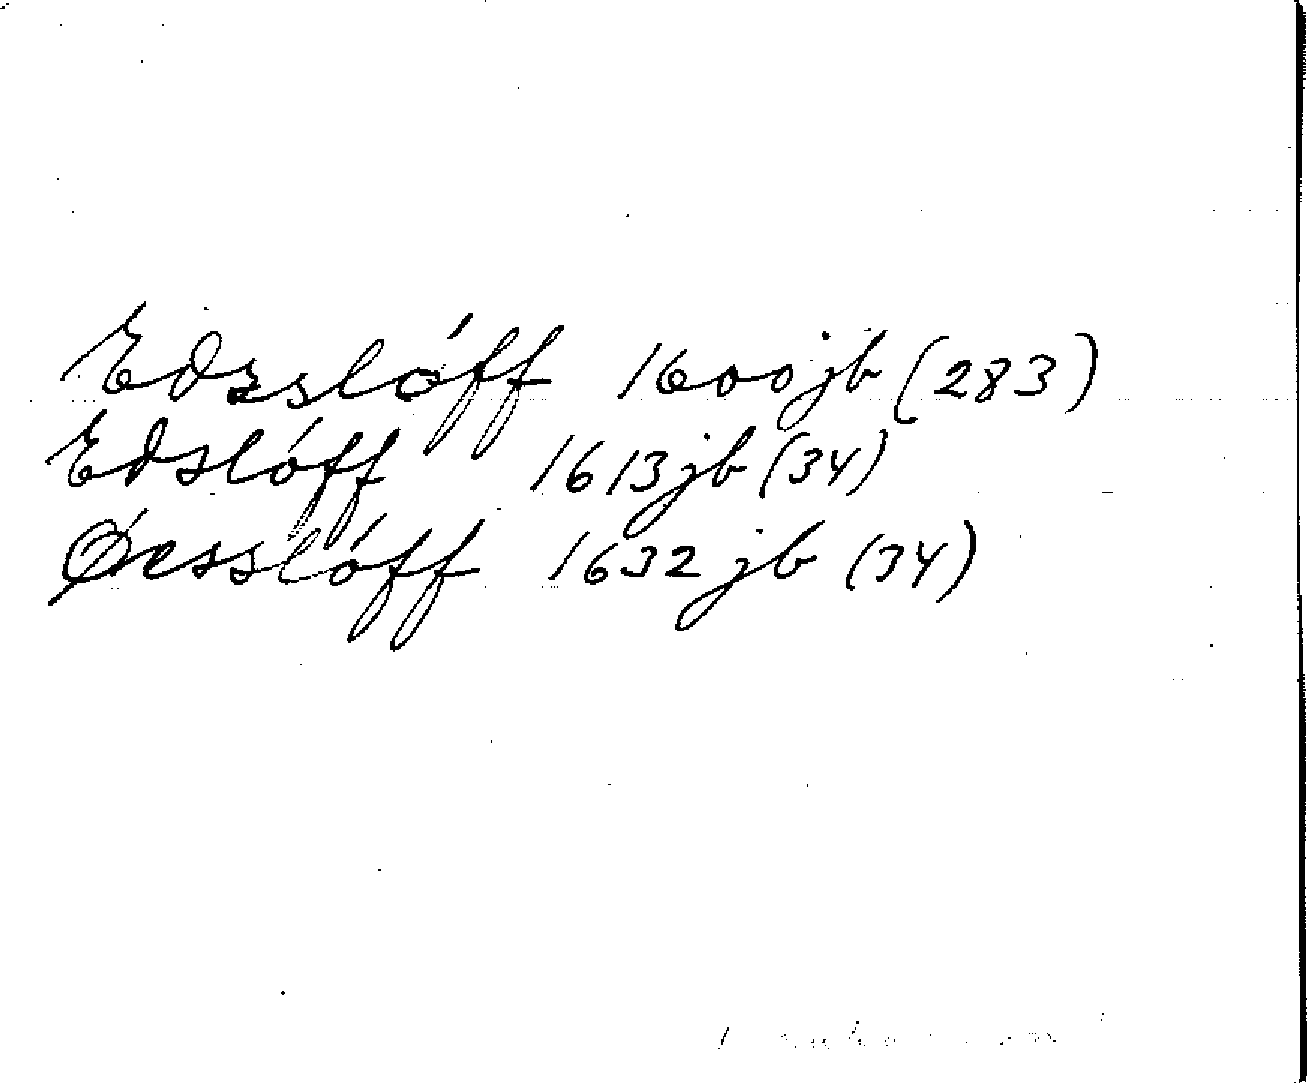 Edzslóff 1600jb (283)
Edslóff 1613jb (34)
Øesslóff 1632jb (34)